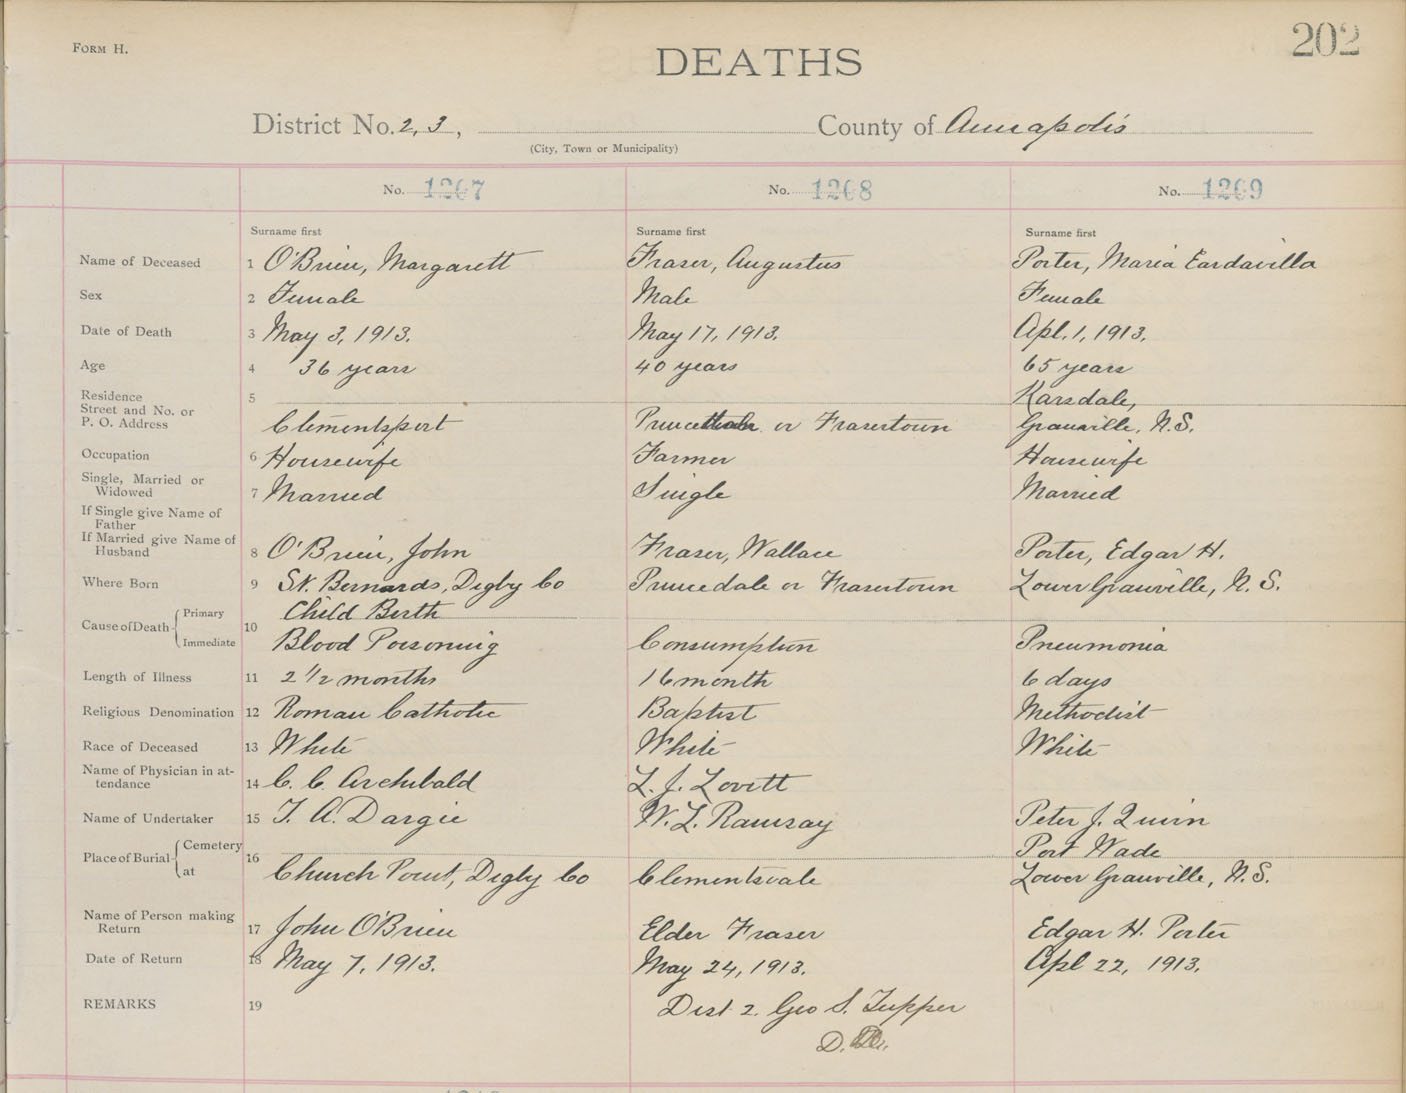 FORM H.
DEATHS
202
District No. 2, 3, County of Annapolis
(City, Town or Municipality)
No. 1207 No. 1208 No. 1209
Surname first Surname first Surname first
Name of Deceased 1 O'Brien, Margarett Fraser, Augustus Porter, Maria Eardavilla
Sex 2 Female Male Female
Date of Death 3 May 3, 1913. May 17, 1913. Apl. 1, 1913.
Age 4 36 years 40 years 65 years
Residence 5 Karsdale,
Street and No. or
P. O. Address Clementsport or Frasertown Granville, N.S.
Occupation 6 Housewife Farmer Housewife
Single, Married or
Widowed 7 Married Single Married
If Single give Name of
Father
If Married give Name of
Husband 8 O'Brien, John Fraser, Wallace Porter, Edgar H.
Where Born 9 St. Bernards, Digby Co Princedale or Frasertown Lower Granville, N. S.
Cause of Death Primary Child Berth
10
Immediate Blood Poisoning Consumption Pneumonia
Length of Illness 11 2 1/2 months 16 month 6 days
Religious Denomination 12 Roman Catholic Baptist Methodist
Race of Deceased 13 White White White
Name of Physician in at-
tendance 14 C. C. Archibald L. J. Lovitt
Name of Undertaker 15 T. A. Dargie W. L. Ramsay Peter J. Quinn
Place of Burial Cemetery 16 Port Wade
at Church Point, Digby Co Clementsvale Lower Granville, N.S.
Name of Person making
Return 17 John O'Brien Elder Fraser Edgar H. Porter
Date of Return 18 May 7, 1913. May 24, 1913. Apl 22, 1913.
REMARKS 19 Dist 2. Geo S. Tupper
D.